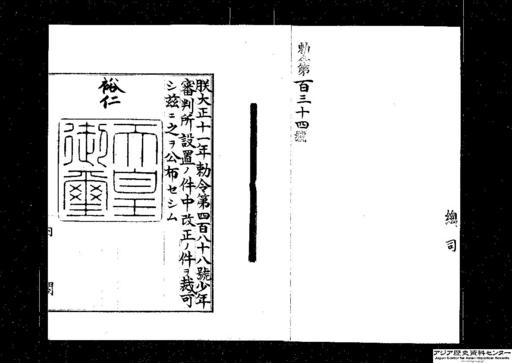 勅令第百三十四號
總
司
朕大正十一年勅令第四百八十八號少年
審判所設置ノ件中改正ノ件ヲ裁可
シ茲ニ之ヲ公布セシム
裕仁
天皇
御璽
内閣
アジア歴史資料センター
Japan Center for Asian Historical Records